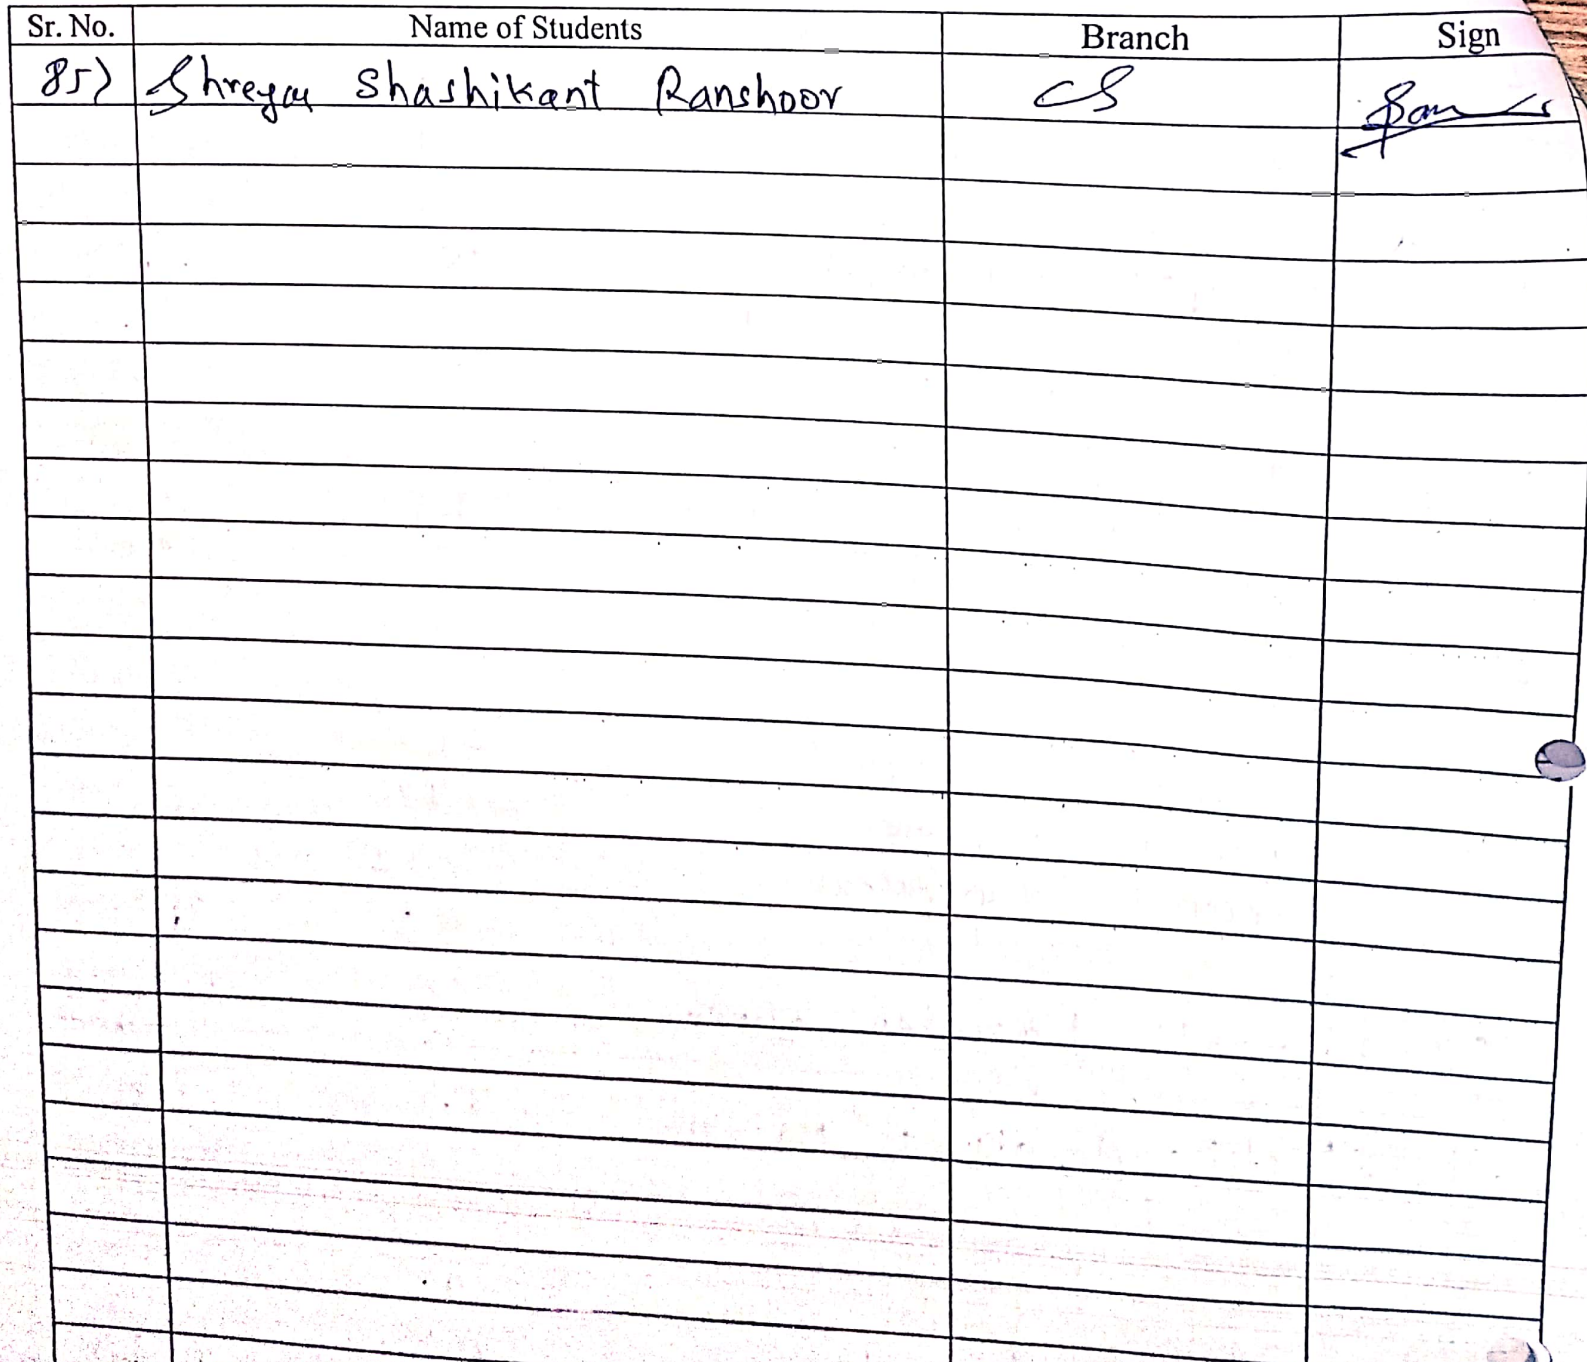 Sr. No. Name of Students Branch Sign
85) Shreyas Shashikant Ranshoor CS